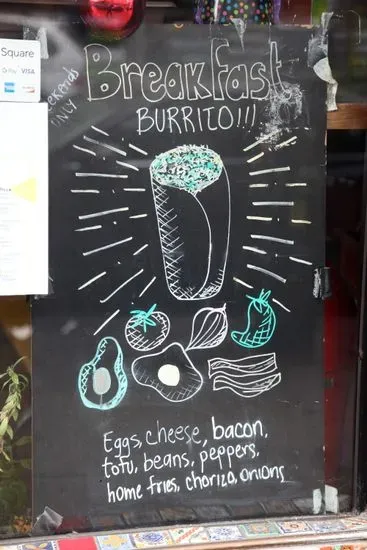 Square
G Pay VISA
Weekends
ONLY
Breakfast
BURRITO!!!
Eggs, cheese, bacon,
tofu, beans, peppers,
home fries, chorizo, onions